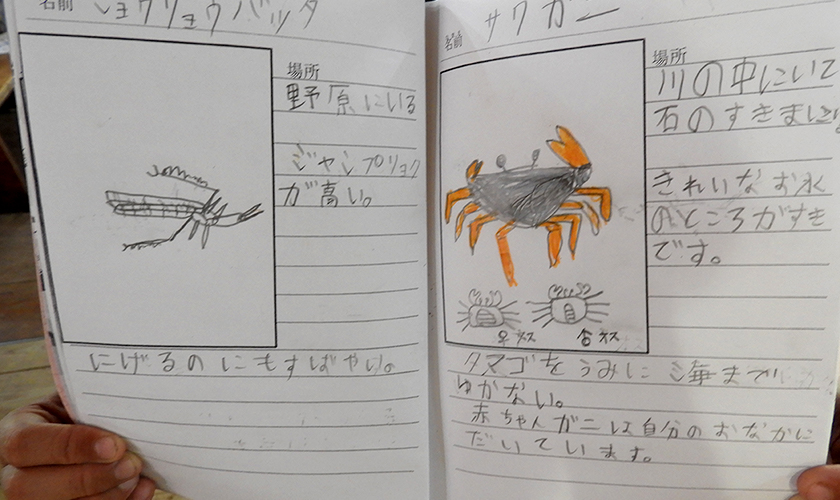 名前 ショウリョウバッタ
場所
野原にいる
ジャンプリョク
が高い。
にげるのにもすばやい。
名前 サワガニ
場所
川の中にいて
石のすきまに
きれいなお水
のところがすき
です。
メス オス
タマゴをうみに海まで
ゆかない。
赤ちゃんガニは自分のおなかに
だいています。